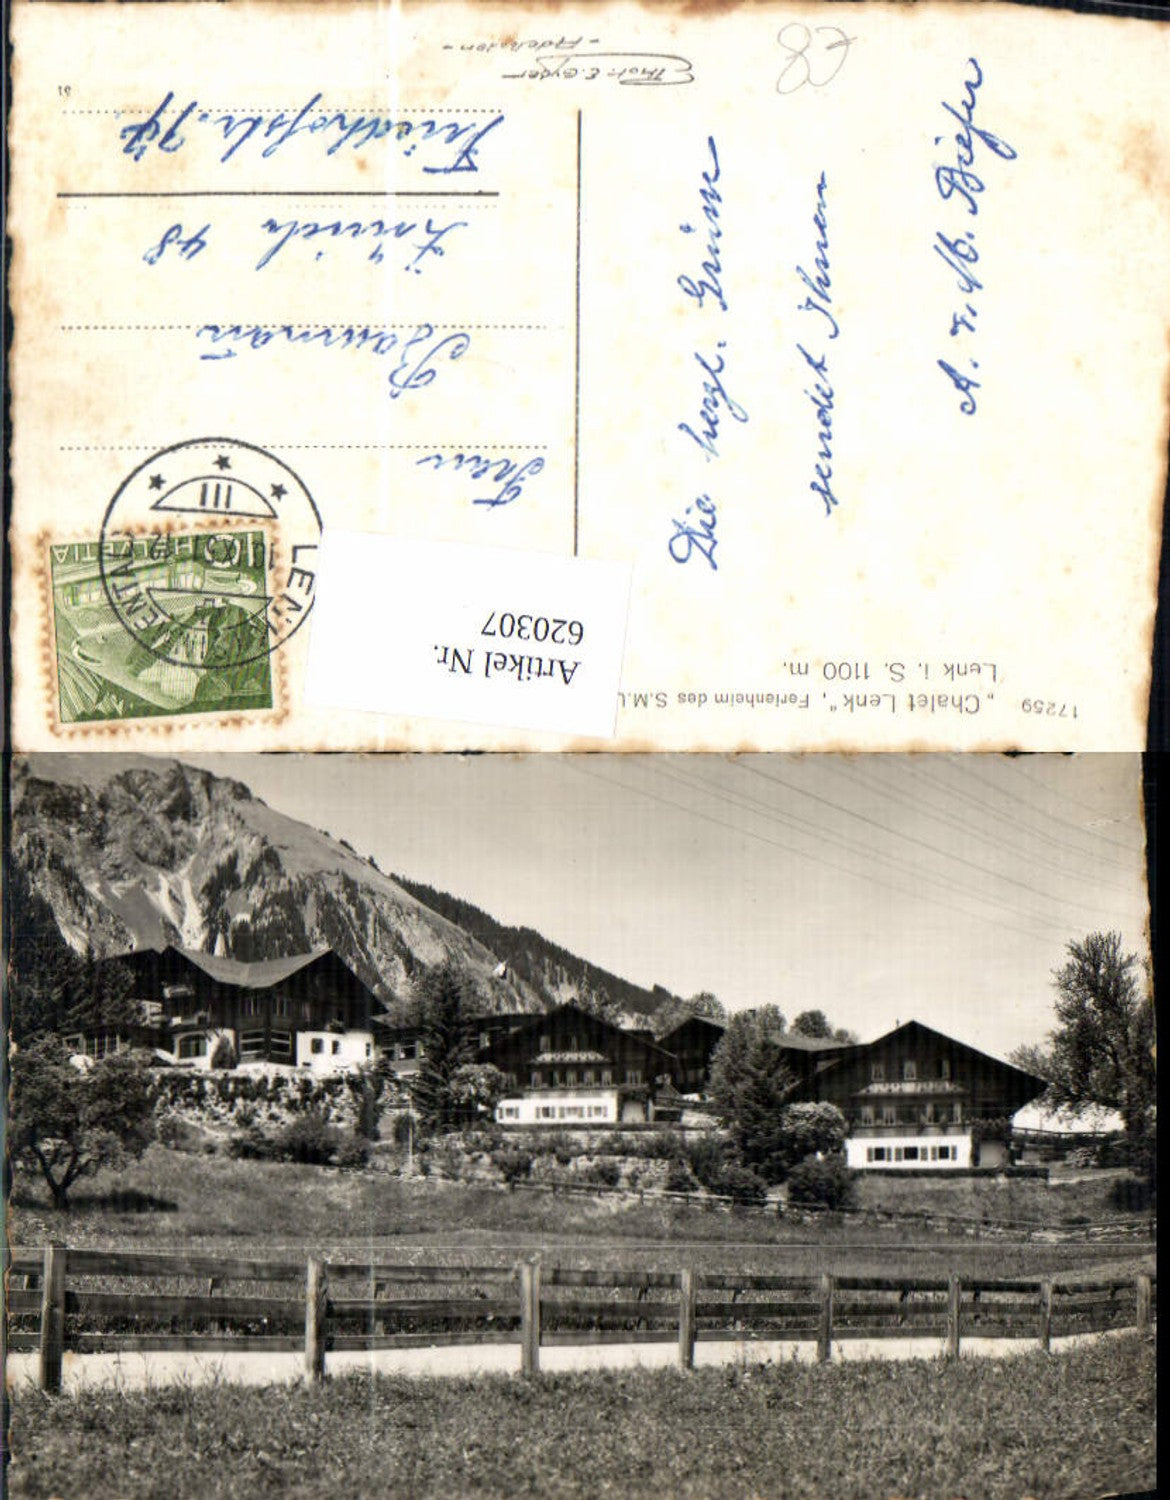 17259
„Chalet Lenk“, Ferienheim des S.M.
Lenk i. S. 1100 m.
Die herzl. Grüsse
sendet Ihnen
A. u. M. Biefer
Phot. E. Gyger
- Adelboden -
Artikel Nr.
620307
HELVETIA
10
LENK
III
Frau
Baumann
Zürich 48
Friedhofstr. 77